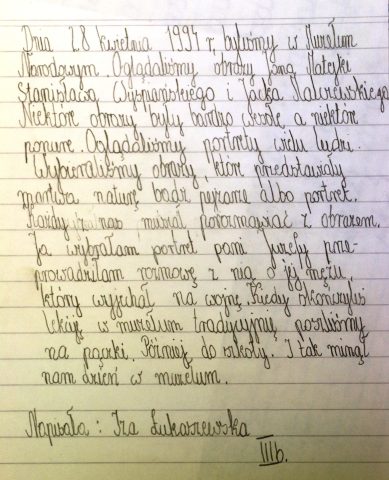 Dnia 28 kwietnia 1994 r. byliśmy w Muzeum
Narodowym. Oglądaliśmy obrazy Jana Matejki
Stanisława Wyspiańskiego i Jacka Malczewskiego
Niektóre obrazy były bardzo wesołe a niektóre
ponure. Oglądaliśmy portrety wielu ludzi.
Wybieraliśmy obrazy, które przedstawiały
martwą naturę bądź pejzaże albo portret.
Każdy z nas musiał porozmawiać z obrazem.
Ja wybrałam portret pani Józefy prze-
prowadziłam rozmowę z nią o jej mężu,
który wyjechał na wojnę. Kiedy skończyliś
lekcję w muzeum tradycyjnie poszliśmy
na pączki. Później do szkoły. I tak minął
nam dzień w muzeum.
Napisała: Iza Łukaszewska
III b.